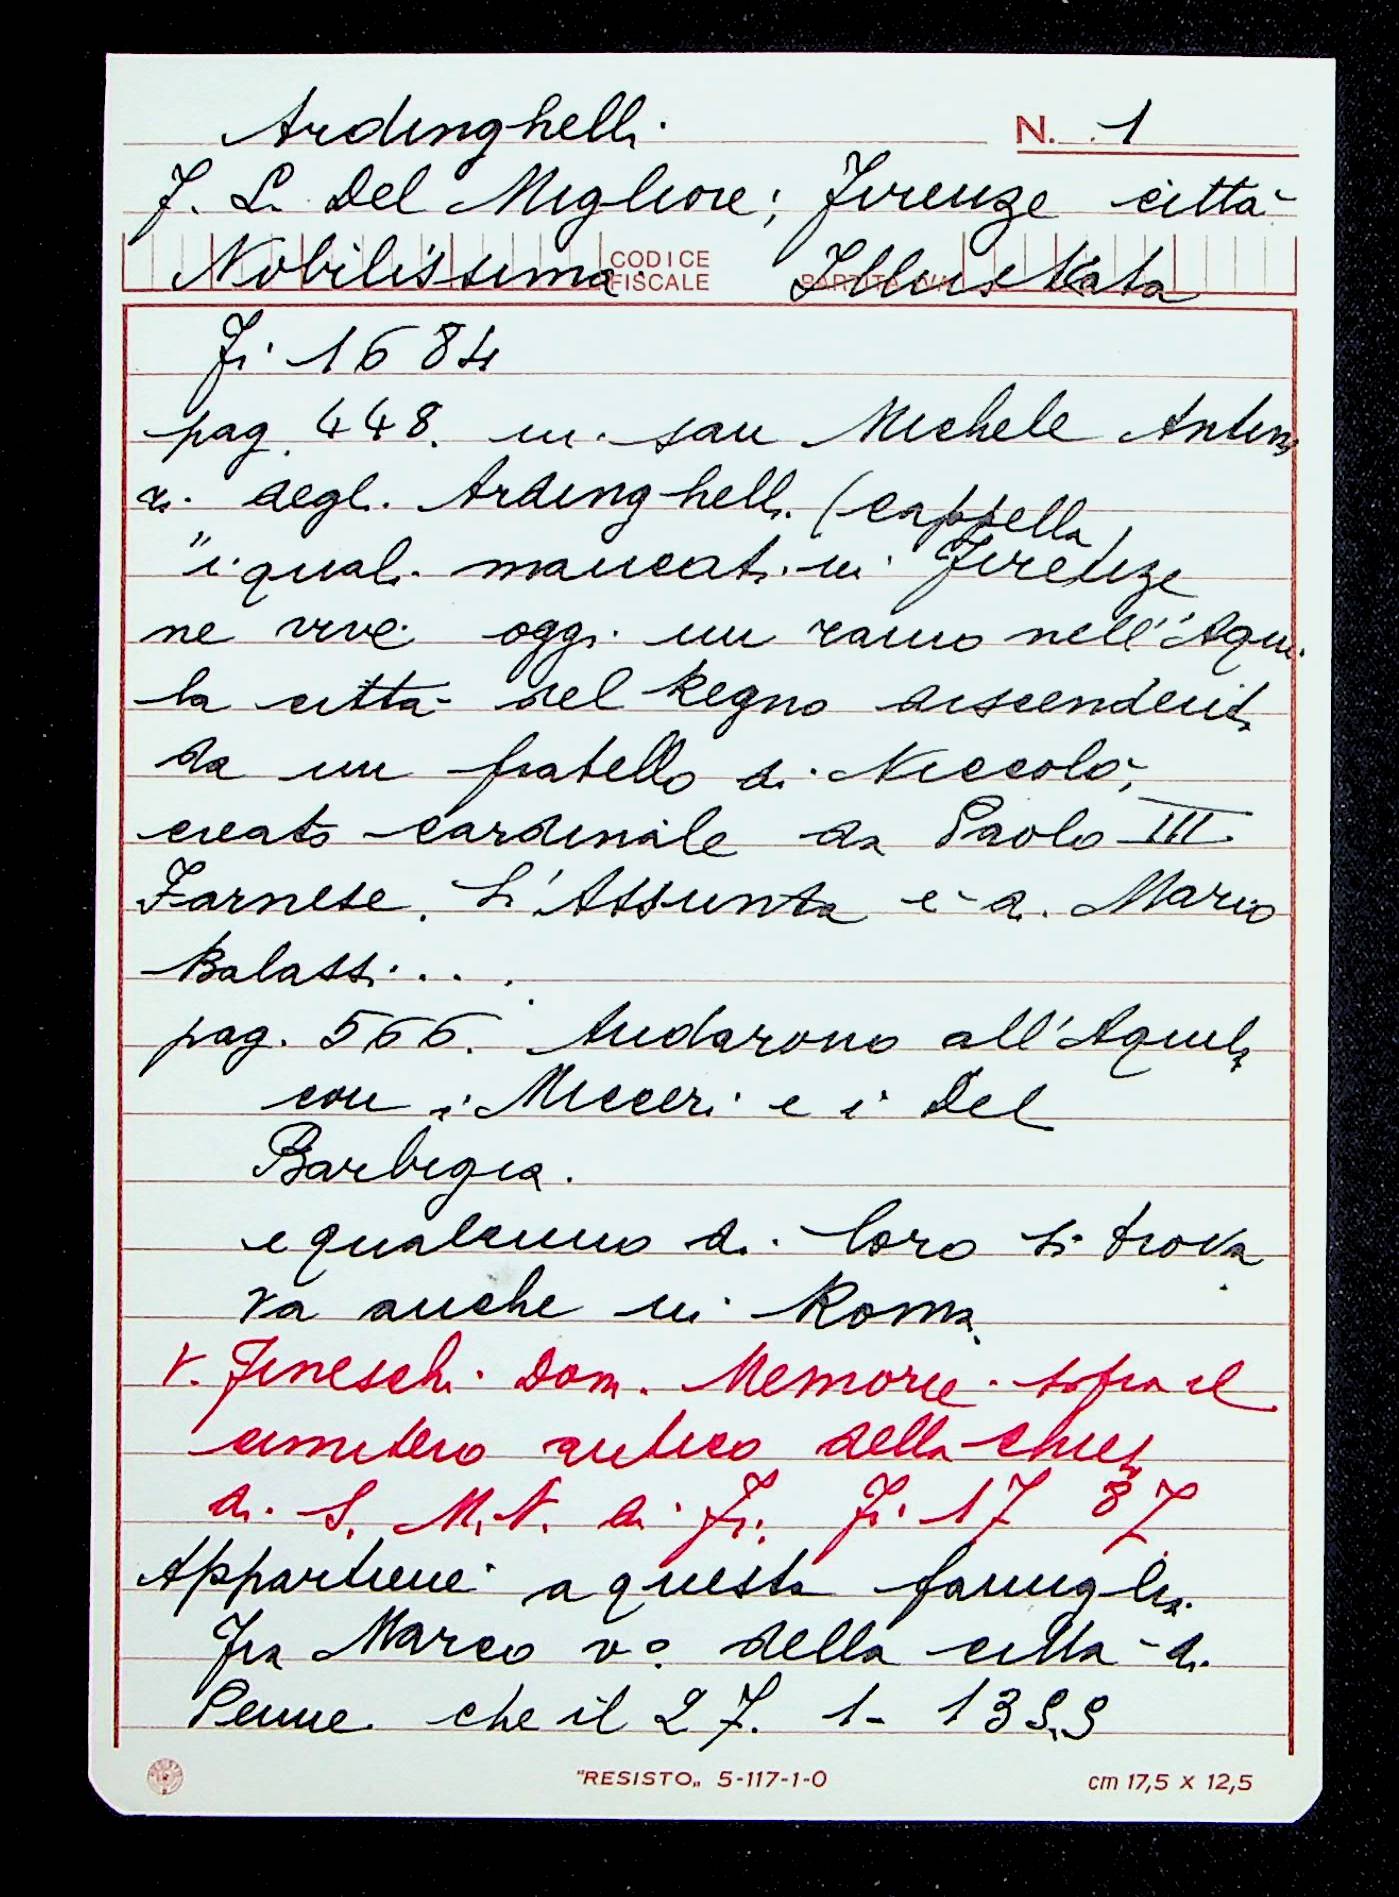 Ardinghelli
N. 1
F. L. Del Migliore; Firenze città
Nobilissima Illustrata
CODICE FISCALE
PARTITA IVA
Fi. 1684
pag. 448. in San Michele Antino
ri degli Ardinghelli (cappella)
"i quali mancati in Firenze
ne vive oggi un ramo nell'Aqui
la città del Regno discendenti
da un fratello di Niccolò,
creato cardinale da Paolo III
Farnese. L'Assunta è di Mario
Balassi....
pag. 566. Andarono all'Aquila
con i Micceri e i Del
Barbigia.
e qualcuno di loro si trova
va anche in Roma.
v. Fineschi Dom. Memorie sopra il
cimitero antico della chiesa
di S. M. N. di Fi. Fi. 1787
Appartiene a questa famiglia
Fra Marco v.o della città di
Penne che il 27. 1- 1399
"RESISTO„ 5-117-1-0
cm 17,5 x 12,5